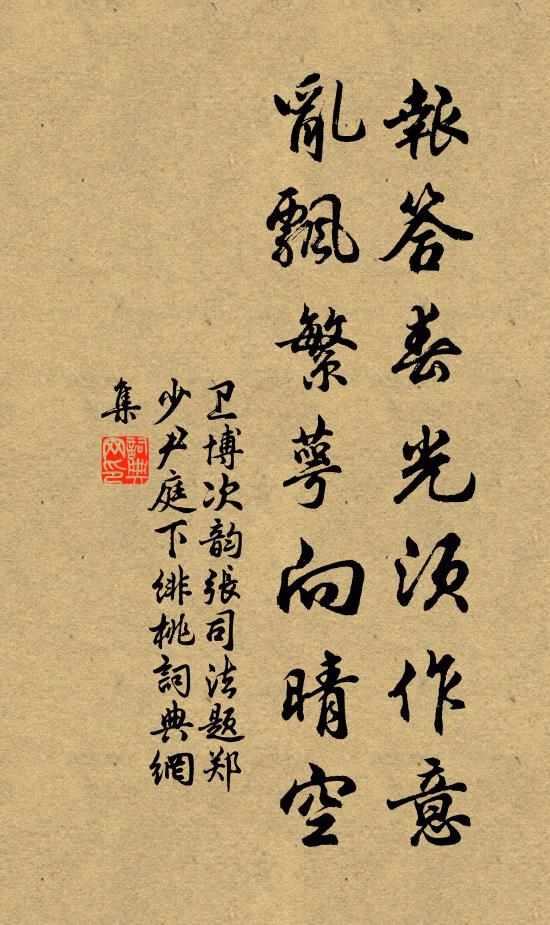 報答春光須作意
亂飄繁萼向晴空
卫博次韵張司法題郑
少尹庭下緋桃詞典網
集
詞典網印